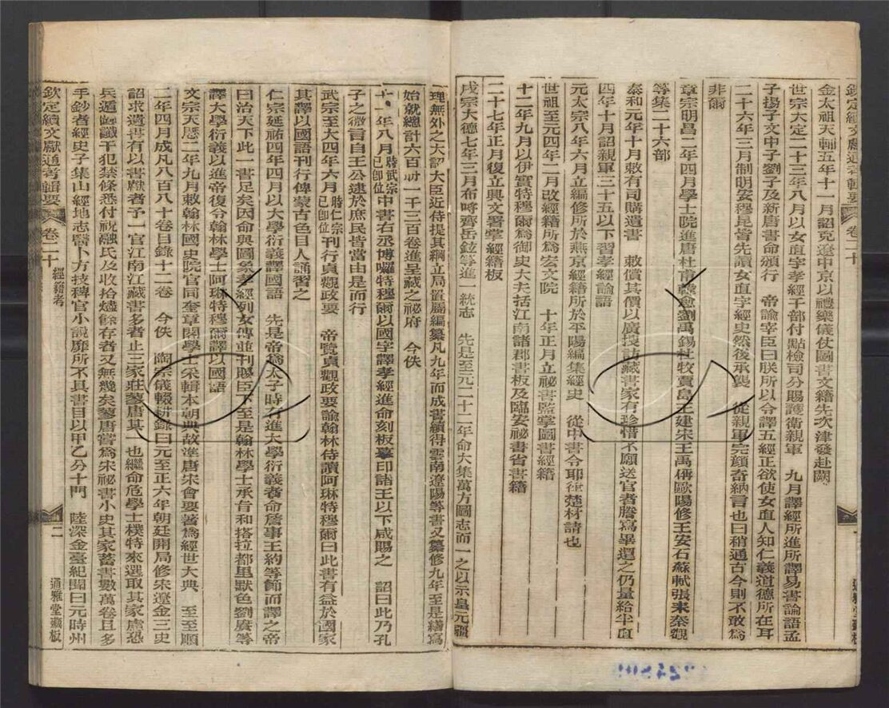 欽定續文獻通考輯要 卷二十
金太祖天輔五年十一月詔克遼中京以禮樂儀仗圖書文籍先次津發赴闕
世宗大定二十三年八月以女直字孝經千部付點檢司分賜護衛親軍 九月譯經所進所譯易書論語孟
子揚子文中子劉子及新唐書命頒行 帝諭宰臣曰朕所以令譯五經正欲使女直人知仁義道德所在耳
二十六年三月制明安穆昆皆先讀女直字經史然後承襲 從親軍完顏奇納言也曰稍通古今則不敢為
非爾
章宗明昌二年四月學士院進唐杜甫韓愈劉禹錫杜牧賈島王建宋王禹偁歐陽修王安石蘇軾張耒秦觀
等集二十六部
泰和元年十月敕有司購遺書 敕償其價以廣搜訪藏書家有珍惜不願送官者謄寫畢還之仍量給半直
四年十月詔親軍三十五以下習孝經論語
元太宗八年六月立編修所於燕京經籍所於平陽編集經史 從中書令耶律楚材請也
世祖至元四年二月改經籍所為宏文院 十年正月立祕書監掌圖書經籍
十二年九月以伊實特穆爾為御史大夫括江南諸郡書板及臨安祕書省書籍
二十七年正月復立興文署掌經籍板
成宗大德七年三月布呼齊岳鉉等進一統志 先是至元二十二年命大集萬方圖志而一之以示皇元疆
理無外之大詔大臣近侍提其綱立局置屬編纂凡九年而成書續得雲南遼陽等書又纂修九年至是繕寫
始就總計六百冊一千三百卷進呈藏之祕府 今佚
十一年八月時武宗已即位中書右丞博囉特穆爾以國字譯孝經進命刻板摹印諸王以下咸賜之 詔曰此乃孔
子之微言自王公達於庶民皆當由是而行
武宗至大四年六月時仁宗已即位刊行貞觀政要 帝覽貞觀政要諭翰林侍讀阿琳特穆爾曰此書有益於國家
其譯以國語刊行俾蒙古色目人誦習之
仁宗延祐四年四月以大學衍義譯國語 先是帝為太子時有進大學衍義者命詹事王約等節而譯之帝
曰治天下此一書足矣因命與圖象孝經列女傳並刊賜臣下至是翰林學士承旨和塔拉都里默色劉賡等
譯大學衍義以進帝復令翰林學士阿琳特穆爾譯以國語
文宗天歷二年九月敕翰林國史院官同奎章閣學士采輯本朝典故準唐宋會要著為經世大典 至至順
二年四月成凡八百八十卷目錄十二卷 今佚 陶宗儀輟耕錄曰元至正六年朝廷開局修宋遼金三史
詔求遺書有以書獻者予一官江南藏書多者止三家莊蓼唐其一也繼命危學士樸特來選取其家慮恐
兵遁圖讖干犯禁條悉付祝融氏及收拾燼餘存者又無幾矣蓼唐嘗為宋祕書小史其家蓄書數萬卷且多
手鈔者經史子集山經地志醫卜方技稗官小說靡所不具書目以甲乙分十門 陸深金臺紀聞曰元時州
欽定續文獻通考輯要 卷二十 經籍考 二 通雅堂藏板